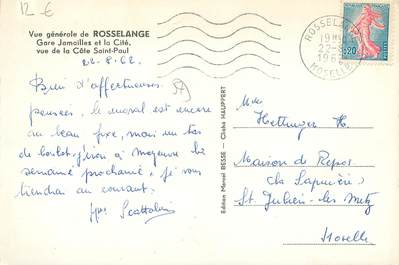 12 €
Vue générale de ROSSELANGE
Gare Jamailles et la Cité,
vue de la Côte Saint-Paul
22.8.62
Bien d'affectueuses
pensées, le moral est encore
au beau fixe, mais un tas
de boulot. J'irai à Mayence la
semaine prochaine, je vous
tiendrai au courant.
Edition Marcel RESSE - Cliché HAUPPERT
ROSSELANGE
22-8
196
MOSELLE
0,20
Hettinger H.
Maison de Repos
St. Julien-les Metz
Moselle